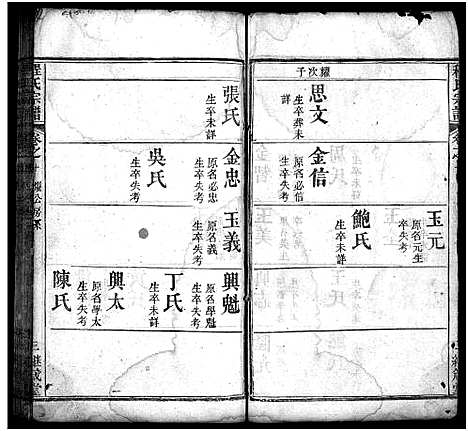 耀次子
思文
生卒葬未詳
金信
原名必信
生卒失考
玉元
原名元生
卒失考
鮑氏
生卒未詳
程氏宗譜
張氏
生卒未詳
金忠
原名必忠
生卒失考
吳氏
生卒失考
玉義
原名義
生卒失考
興魁
原名學魁
生卒失考
丁氏
生卒未詳
興太
原名學太
生卒失考
陳氏
生卒失考
程氏宗譜
卷之十